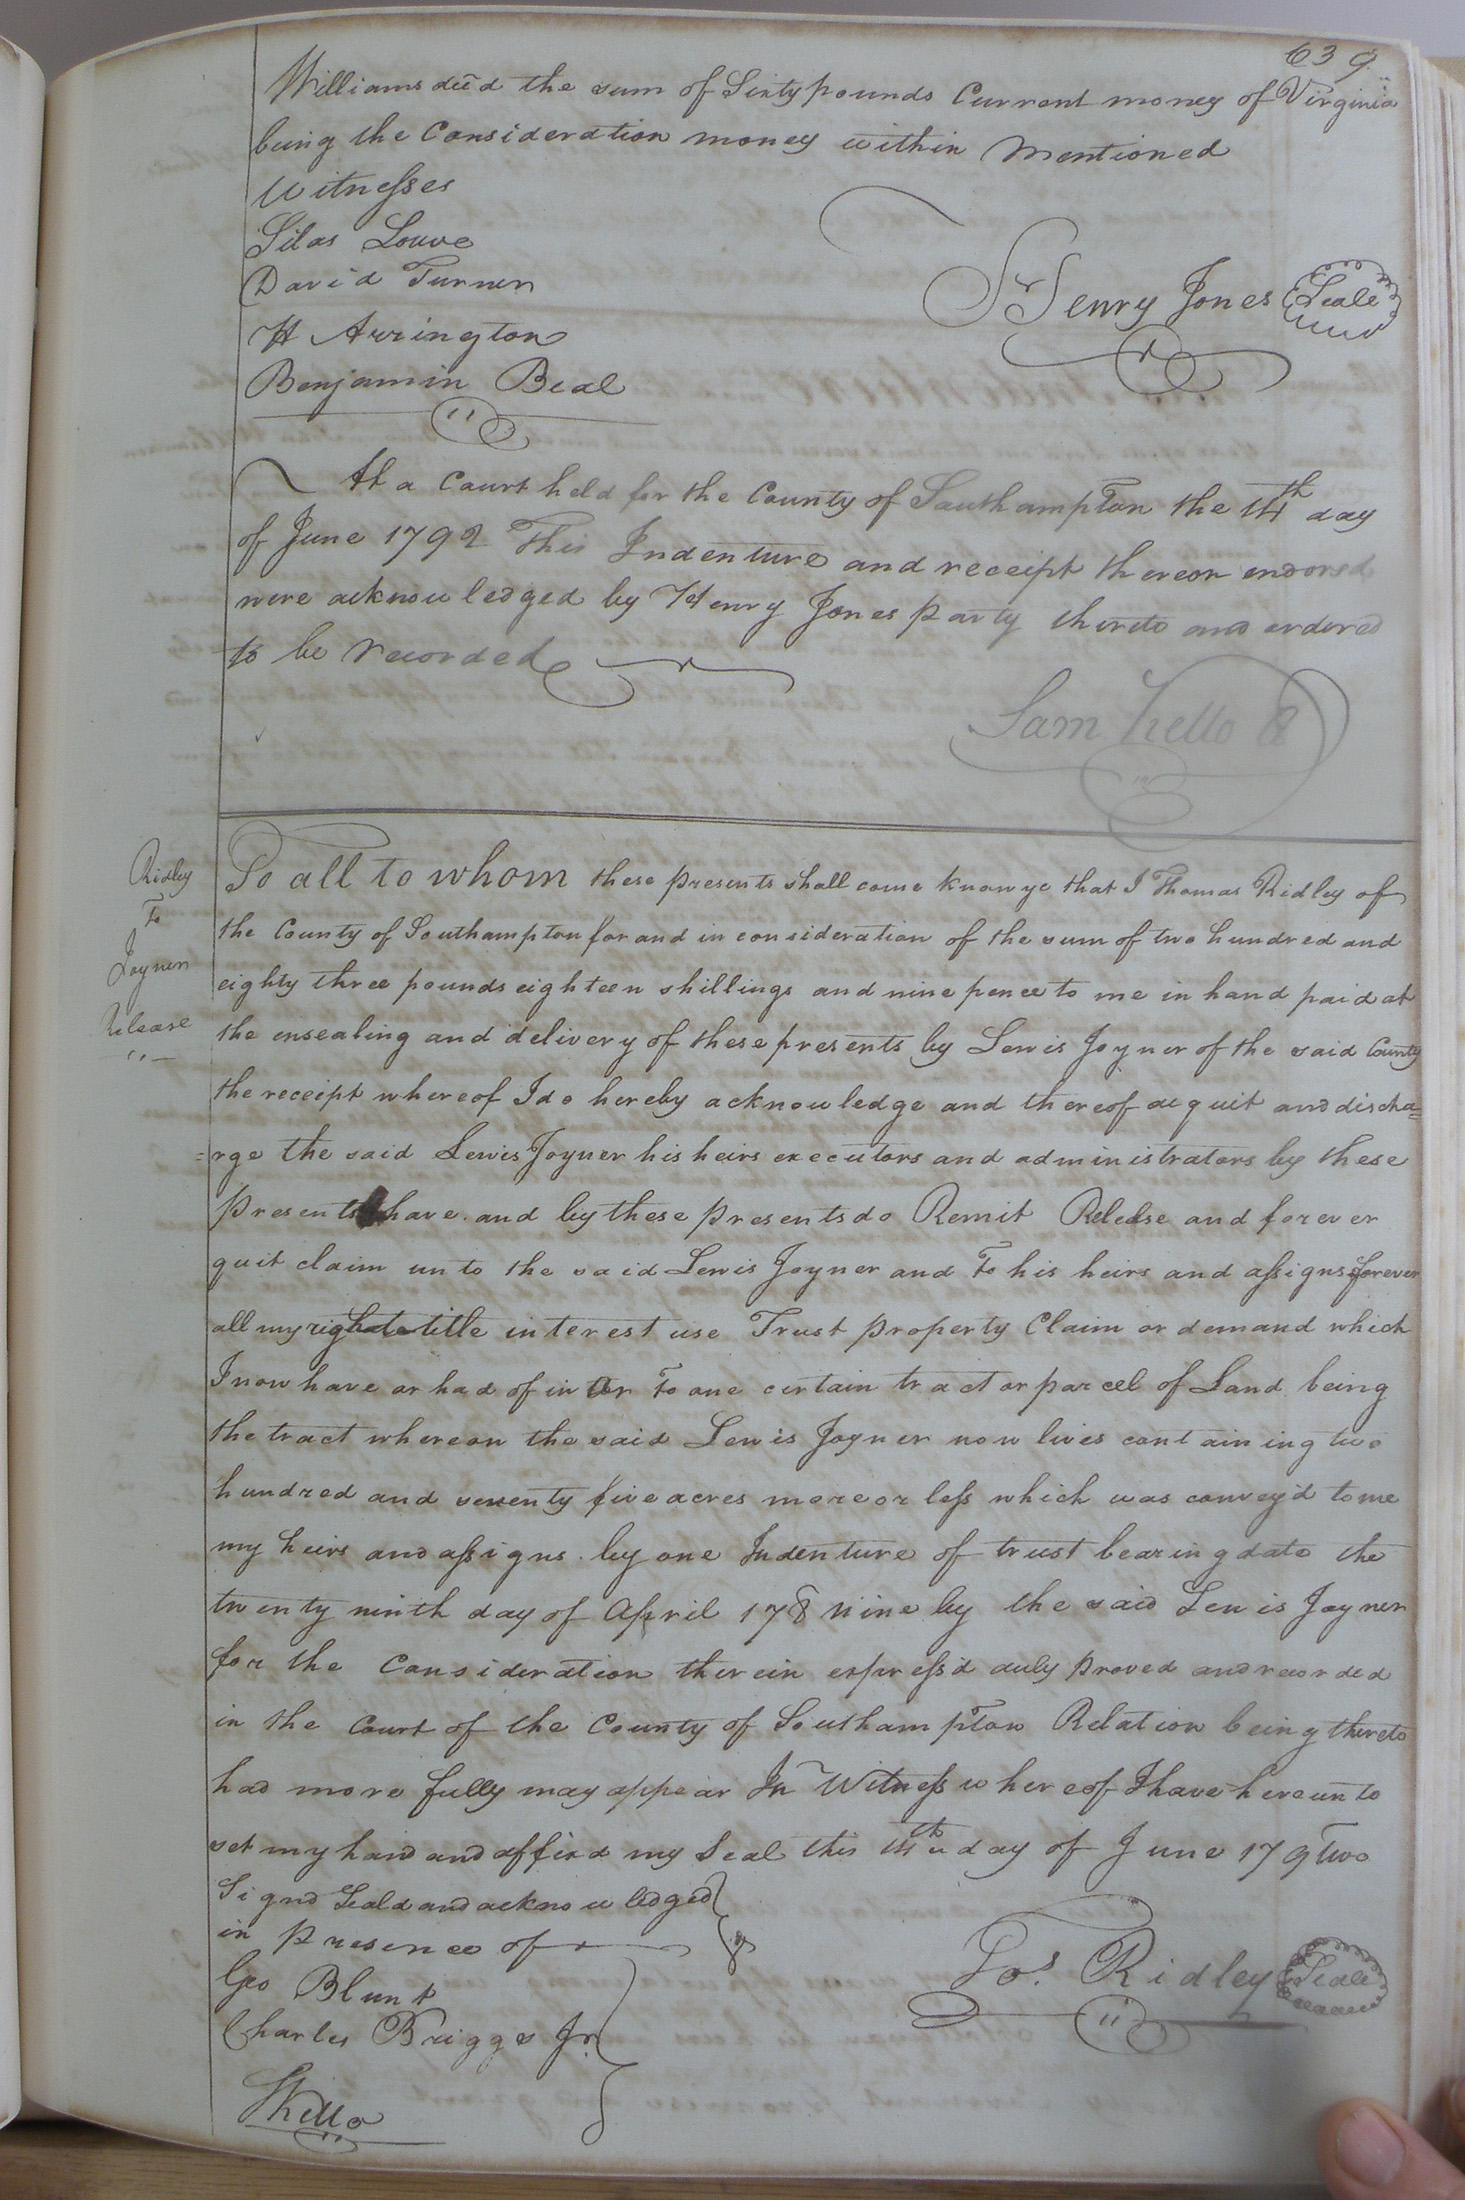 639
Williams decd the sum of Sixty pounds Current money of Virginia
being the Consideration money within Mentioned
Witnesses
Silas Louve
David Turner
H Arrington
Benjamin Beal
Henry Jones Seale
At a Court held for the County of Southampton the 14th day
of June 1792 This Indenture and receipt thereon endorsd
were acknowledged by Henry Jones party thereto and ordered
to be recorded
Sam Kello
Ridley
To
Joyner
Release
To all to whom these presents shall come know ye that I Thomas Ridley of
the County of Southampton for and in consideration of the sum of two hundred and
eighty three pounds eighteen shillings and nine pence to me in hand paid at
the ensealing and delivery of these presents by Lewis Joyner of the said County
the receipt whereof I do hereby acknowledge and thereof acquit and discha=
=rge the said Lewis Joyner his heirs executors and administrators by these
presents have and by these presents do Remit Release and forever
quit claim unto the said Lewis Joyner and To his heirs and assigns forever
all my right title interest use Trust property Claim or demand which
I now have or had of in or To one certain tract or parcel of Land being
the tract whereon the said Lewis Joyner now lives containing two
hundred and seventy five acres more or less which was convey'd to me
my heirs and assigns by one Indenture of trust bearing date the
twenty ninth day of April 178 Nine by the said Lewis Joyner
for the Consideration therein express'd duly proved and recorded
in the Court of the County of Southampton Relation being thereto
had more fully may appear In Witness whereof I have hereunto
set my hand and affixd my Seal this 14th day of June 179 two
Signd Seald and acknowledged
in presence of
Geo Blunt
Charles Briggs Jr.
SKello
Tos. Ridley Seale